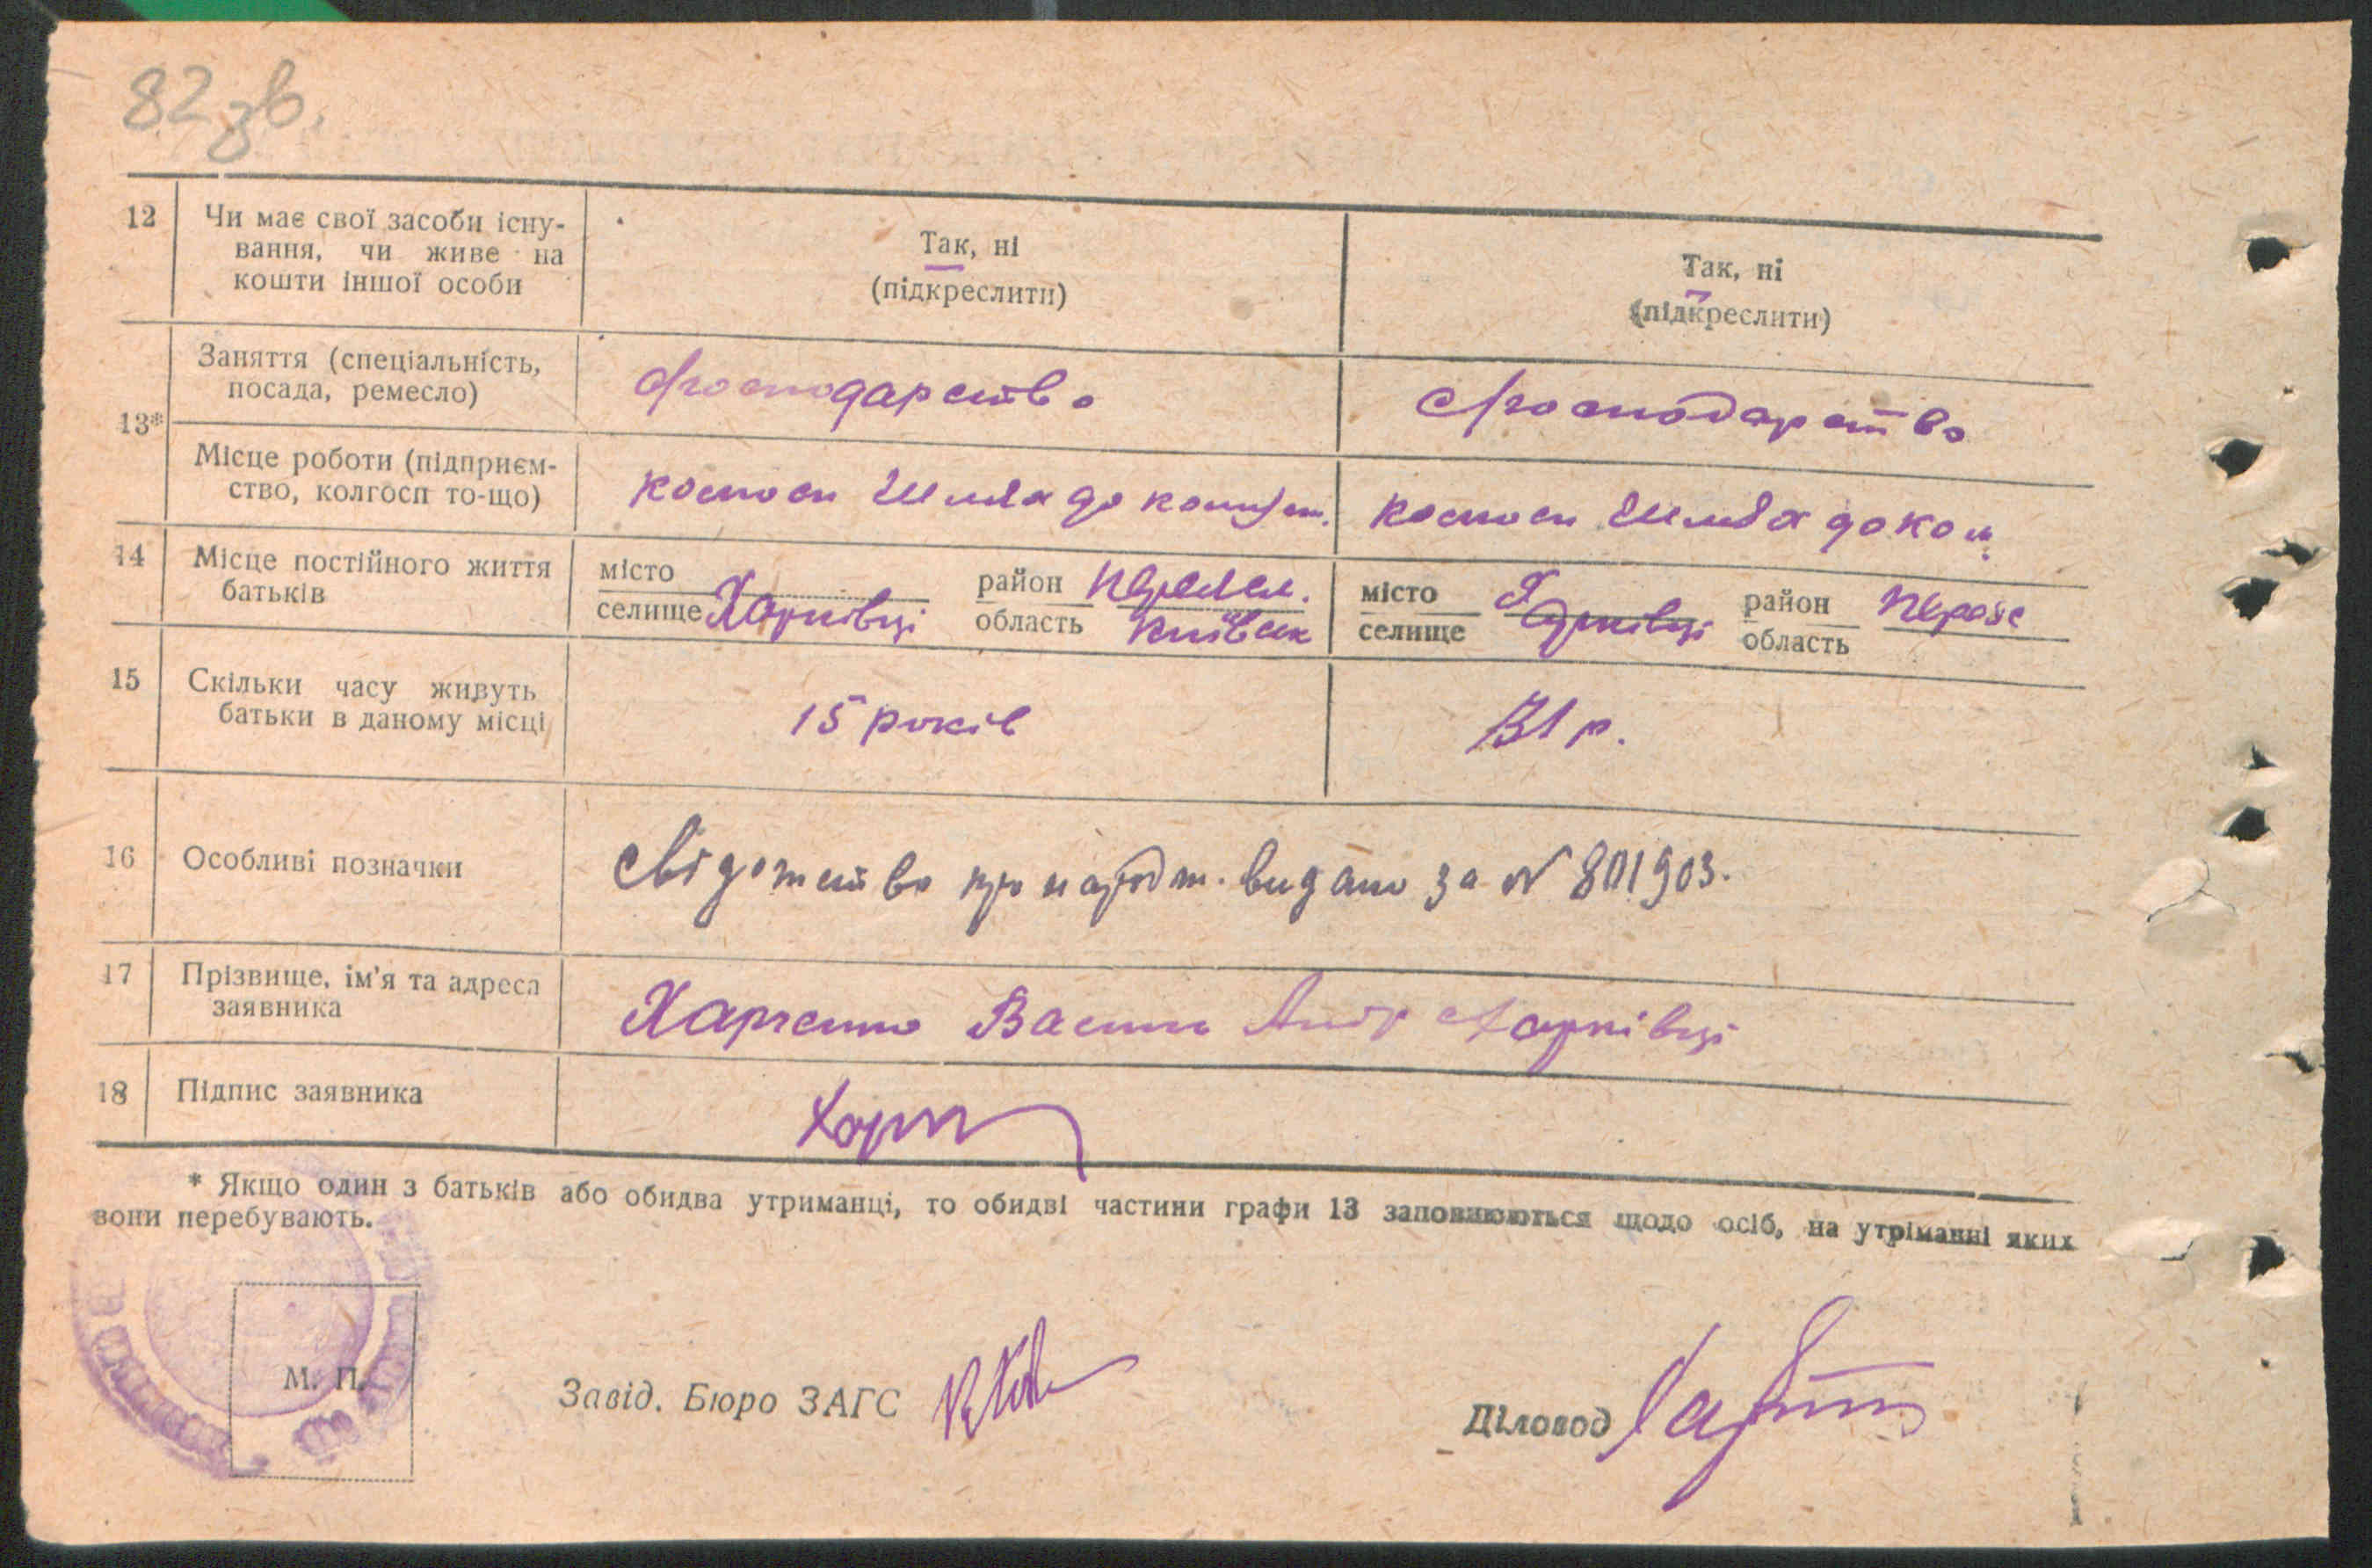 82 зв.
12
Чи має свої засоби існу-
вання, чи живе на
кошти іншої особи
Так, ні
(підкреслити)
Так, ні
(підкреслити)
13*
Заняття (спеціальність,
посада, ремесло)
Місце роботи (підприєм-
ство, колгосп то-що)
Шлях до
Шлях до
14
Місце постійного життя
батьків
місто
селище Харківці
район
область Київськ
місто
селище Харківці
район
область
15
Скільки часу живуть
батьки в даному місці
15 років
31 р.
16
Особливі позначки
Свідотство про народж. видано за № 801903.
17
Прізвище, ім'я та адреса
заявника
Харченко Василь Андр Харківці
18
Підпис заявника
Харч
* Якщо один з батьків або обидва утриманці, то обидві частини графи 13 заповнюються щодо осіб, на утріманні яких
вони перебувають.
М. П.
Завід. Бюро ЗАГС
Діловод